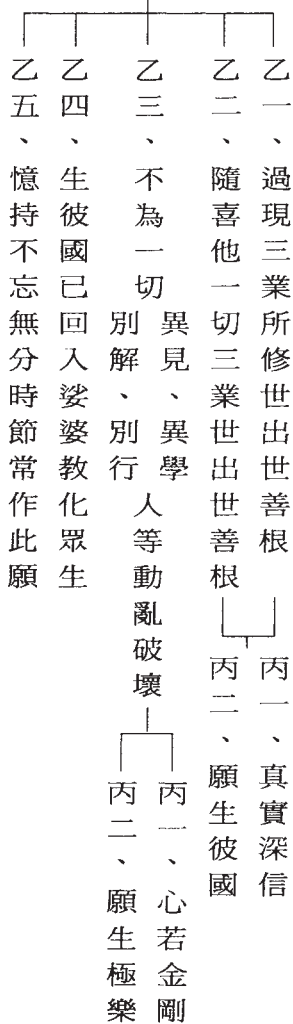 乙一、過現三業所修世出世善根
乙二、隨喜他一切三業世出世善根
丙一、真實深信
丙二、願生彼國
乙三、不為一切異見、異學別解、別行人等動亂破壞
丙一、心若金剛
丙二、願生極樂
乙四、生彼國已回入娑婆教化眾生
乙五、憶持不忘無分時節常作此願